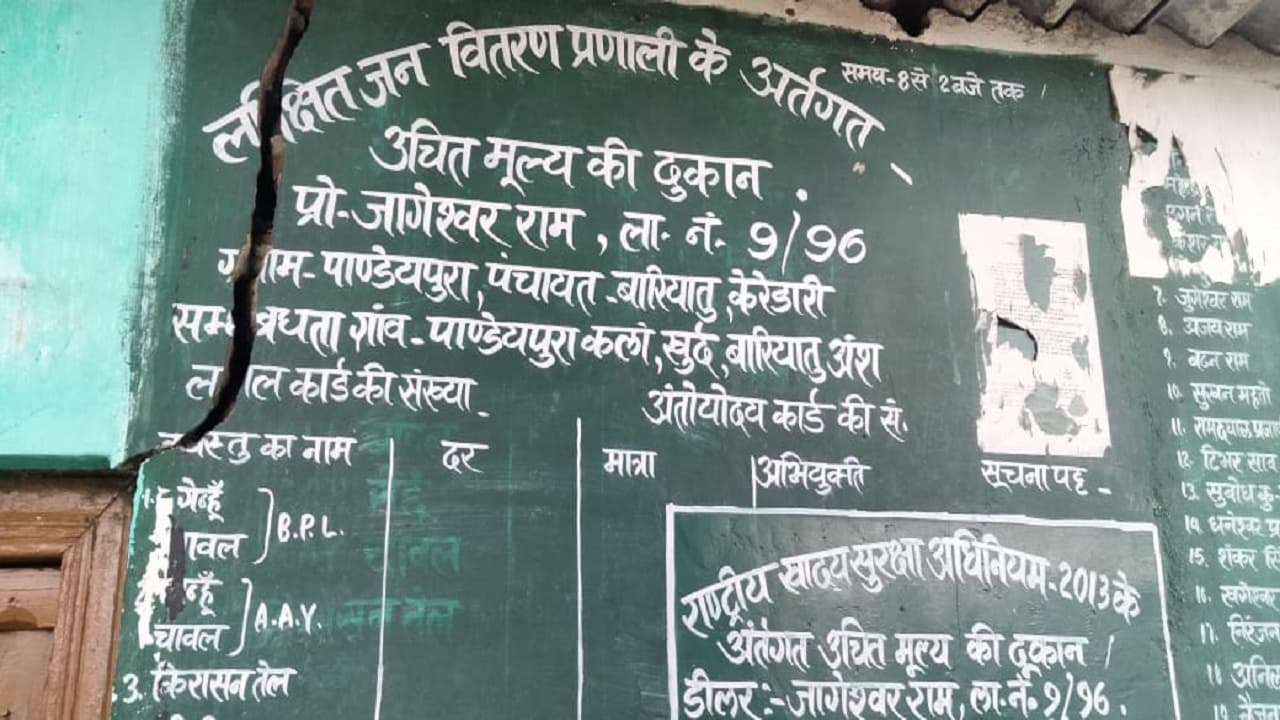 लक्षित जन वितरण प्रणाली के अर्तगत
समय-8 से 2 बजे तक ।
उचित मूल्य की दुकान
प्रो-जागेश्वर राम , ला॰ नं॰ 9/96
ग्राम-पाण्डेयपुरा, पंचायत-बारियातु, केरेडारी
सम्बधता गांव-पाण्डेयपुरा कलां, खुर्द, बारियातु अंश
कार्ड की संख्या
अंतोयोदय कार्ड की सं॰
वस्तु का नाम
दर
मात्रा
अभियुक्ति
सूचना पट्ट
1. गेन्हूँ
चावल
B.P.L.
गेन्हूँ
चावल
A.A.Y.
3. किरासन तेल
राष्ट्रीय खाद्य सुरक्षा अधिनियम-2013 के
अंर्तगत उचित मूल्य की दूकान ।
डीलर:-जागेश्वर राम, ला॰नं॰ 9/96.
7. जुगेश्वर राम
8. अजय राम
9. बढन राम
10. महतो
11. रामदयाल
12. साव
13. सुबोध
14. धनेश्वर
15. शंकर
16. खगेश्वर
17. निरंजन
18. अनिल
19.